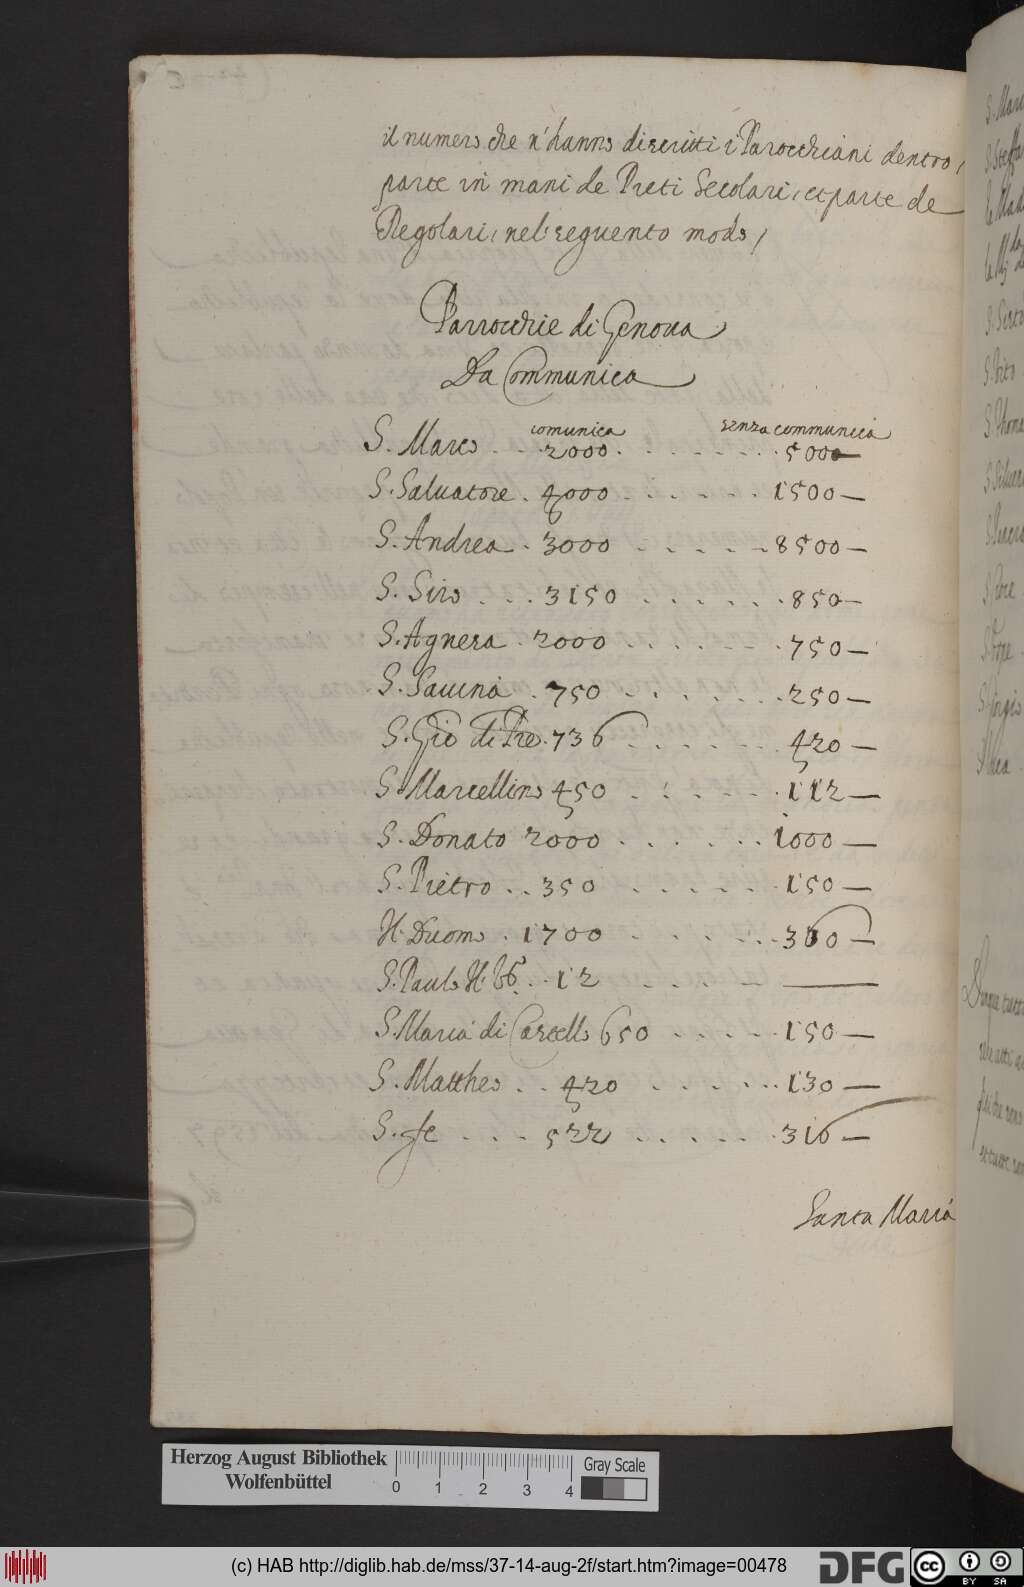 il numero che n'hanno discritti i Parocchiani dentro,
parte in mani de Preti Secolari, et parte de
Regolari, nel seguento modo,
Parrocchie di Genoua
Da Communica
comunica senza communica
S. Marco . . . 2000 . . . . . . . . 5000—
S. Saluatore . 4000 . . . . . . 1500—
S. Andrea . 3000 . . . . . . 8500—
S. Siro . . . 3150 . . . . . . 850—
S. Agnesa . 2000 . . . . . . . 750—
S. Sauina . 750 . . . . . . . 250—
S. Gio di Pre . 736 . . . . . . 420—
S. Marcellino 450 . . . . . . . 112—
S. Donato 2000 . . . . . . 1000—
S. Pietro . . 350 . . . . . . 150—
Il Duomo . 1700 . . . . . . 300—
S. Paulo Il . . 12 . . . . ——
S. Maria di Carcello 650 . . . . . 150—
S. Mattheo . . 420 . . . . . . 130—
S. fe . . . . 522 . . . . . . 316—
Santa Maria
S. Marc
S. Steff
S. Vito
S. Thoma
S. Siluest
Herzog August Bibliothek
Wolfenbüttel
0 1 2 3 4
Gray Scale
(c) HAB http://diglib.hab.de/mss/37-14-aug-2f/start.htm?image=00478
DFG
cc BY SA